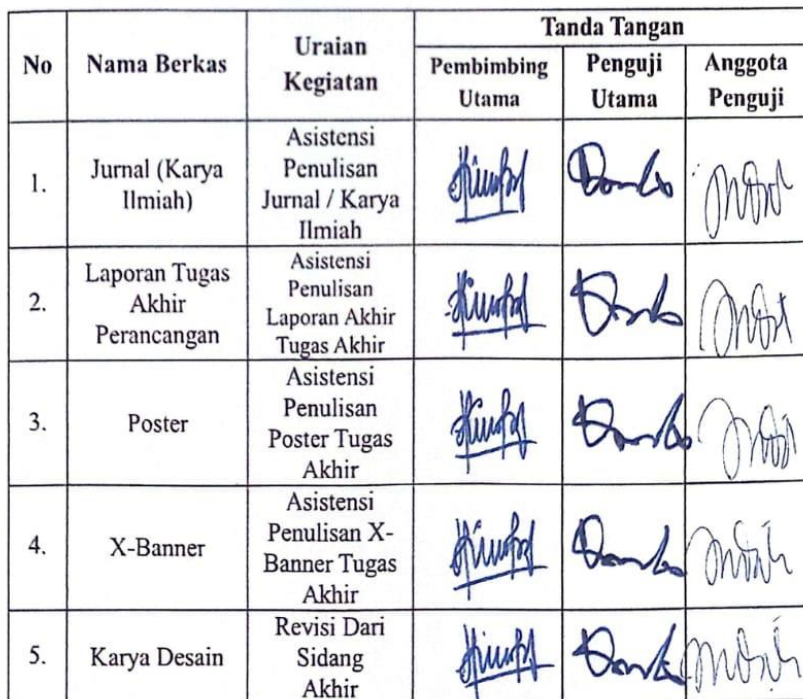 No
Nama Berkas
Uraian
Kegiatan
Tanda Tangan
Pembimbing
Utama
Penguji
Utama
Anggota
Penguji
1.
Jurnal (Karya
Ilmiah)
Asistensi
Penulisan
Jurnal / Karya
Ilmiah
2.
Laporan Tugas
Akhir
Perancangan
Asistensi
Penulisan
Laporan Akhir
Tugas Akhir
3.
Poster
Asistensi
Penulisan
Poster Tugas
Akhir
4.
X-Banner
Asistensi
Penulisan X-
Banner Tugas
Akhir
5.
Karya Desain
Revisi Dari
Sidang
Akhir